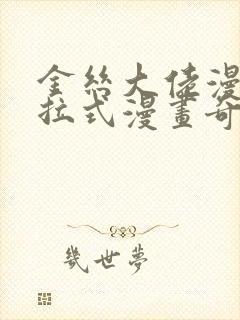 金丝大佬漫
拉式漫畫奇
幾世夢